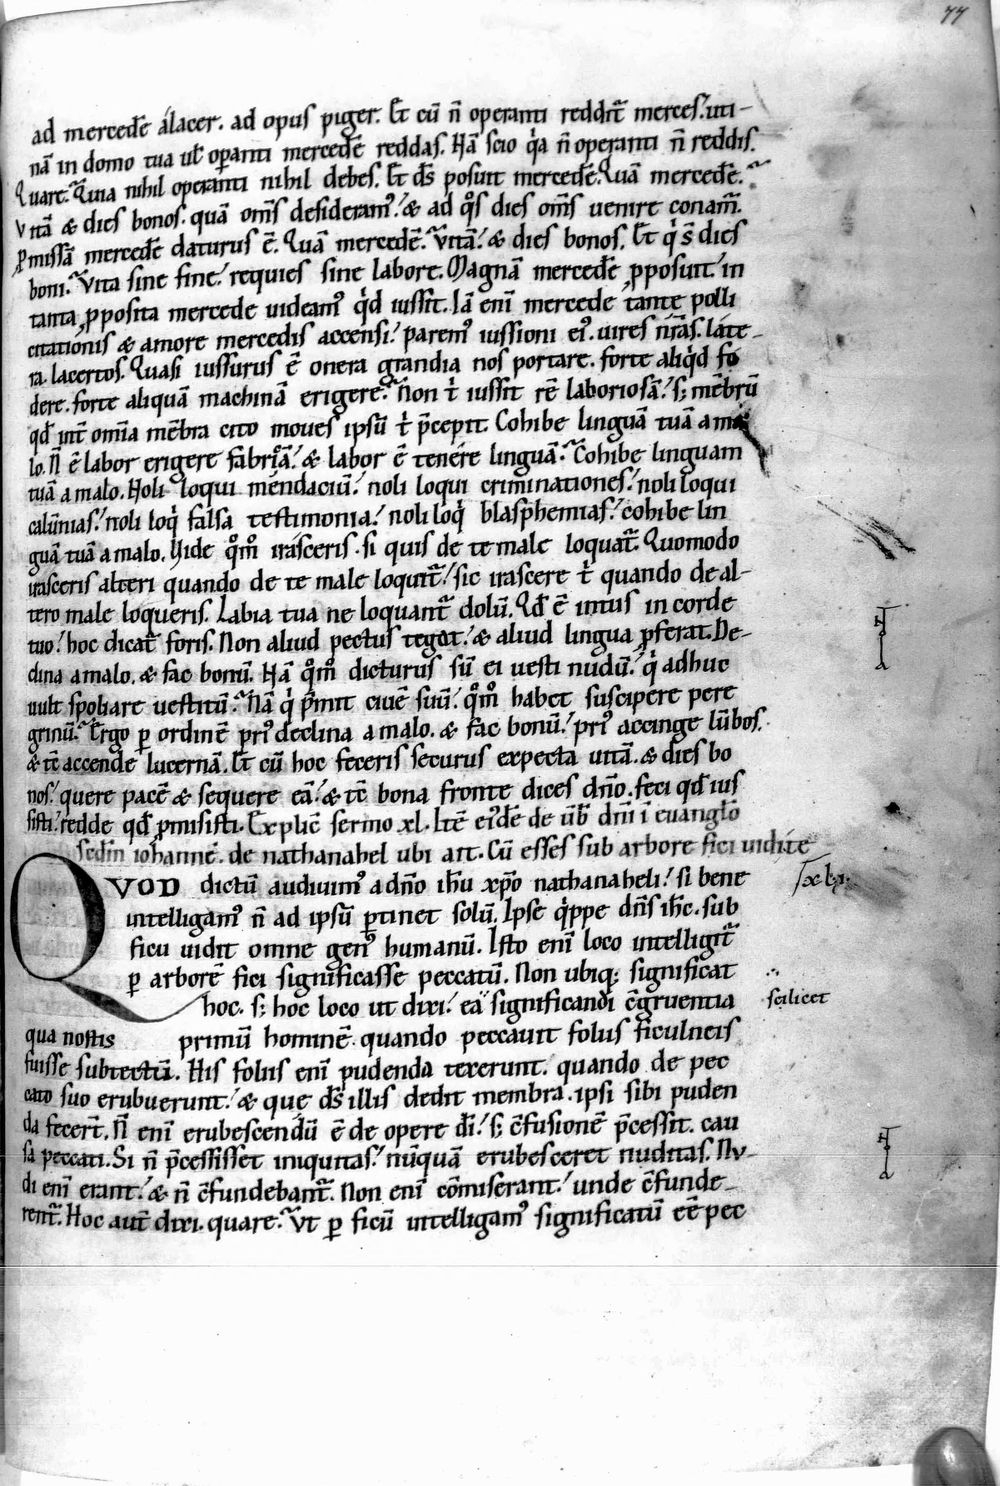 77
ad mercedē alacer. ad opus piger. Et cū n̄ operanti reddit᷑ merces. uti-
nā in domo tua ul̄ operanti mercedē reddas. Nā scio q̇a n̄ operanti n̄ reddis.
Quare. Quia nihil operanti nihil debes. Et ds̄ posuit mercedē. Quā mercedē.
Vitā & dies bonos. quā om̄s desideramꝰ. & ad qͦs dies om̄s uenire conam᷑.
ꝓmissā mercedē daturus ē. Quā mercedē. Vitā. & dies bonos. Et q̇ s̄ dies
boni. Vita sine fine. requies sine labore. Magnā mercedē ꝓposuit. in
tanta ꝓposita mercede uideamꝰ q̇d iussit. Iā eni mercede tante polli
citationis & amore mercedis accensi. paremꝰ iussioni eiꝰ. uires nr̄as. late-
ra. lacertos. Quasi iussurus ē onera grandia nos portare. forte aliq̇d fo
dere. forte aliquā machinā erigere. Non ṫ iussit rē laboriosā. s; mēbrū
qd̄ int̄ omīa mēbra cito moues ipsū ṫ p̄cepit. Cohibe linguā tuā a ma
lo. N̄ ē labor erigere fabricā. & labor ē tenere linguā. Cohibe linguam
tuā a malo. Noli loqui mendaciū. noli loqui criminationes. noli loqui
calūnias. noli loq̇ falsa testimonia. noli loq̇ blasphemias. cohibe lin
guā tuā a malo. Vide qͦm̊ irasceris. si quis de te male loquat᷑. Quomodo
irasceris alteri quando de te male loquit᷑. sic irascere ṫ quando de al-
tero male loqueris. Labia tua ne loquant᷑ dolū. Qd̄ ē intus in corde
tuo. hoc dicat᷑ foris. Non aliud pectus tegat. & aliud lingua ꝓferat. De-
clina a malo. & fac bonū. Nā qͦm̊ dicturus sū ei uesti nudū. q̇ adhuc
uult spoliare uestitū. Nā q̇ p̄mit ciuē suū. qͦm̊ habet suscipere pere
grinū. Ergo ꝑ ordinē priꝰ declina a malo. & fac bonū. priꝰ accinge lūbos.
& tc̄ accende lucernā. Et cū hoc feceris securus expecta uitā. & dies bo
nos. quere pacē & sequere eā. & tc̄ bona fronte dices dn̄o. feci qd̄ ius
sisti. redde qd̄ ꝓmisisti. Explic̄ sermo xl. Itē eiꝰdē de ūb̄ dn̄i ī euangl̄o
sedm̄ iohannē. de nathanahel ubi ait. Cū esses sub arbore fici uidi te
QVOD dictū audiuimꝰ a dn̄o ih̄u xp̄o nathanaheli. si bene
intelligamꝰ n̄ ad ipsū ꝑtinet solū. Ipse q̇ppe dn̄s ih̄c. sub
ficu uidit omne genꝰ humanū. Isto enī loco intelligit᷑
ꝑ arborē fici significasse peccatū. Non ubiq; significat
hoc. s; hoc loco ut dixi. eā significandi cōgruentia
scilicet
qua nostis primū hominē quando peccauit foliis ficulneis
fuisse subtectū. His foliis enī pudenda texerunt. quando de pec
cato suo erubuerunt. & que ds̄ illis dedit membra. ipsi sibi puden
da fecert̄. N̄ enī erubescendū ē de opere dī. s; cōfusionē p̄cessit. cau
sa peccati. Si n̄ p̄cessisset iniquitas. nūquā erubesceret nuditas. Nu-
di enī erant. & n̄ cōfundebant᷑. Non enī cōmiserant. unde cōfunde-
rent᷑. Hoc aut̄ dixi. quare. Vt ꝑ ficū intelligamꝰ significatū eē pec